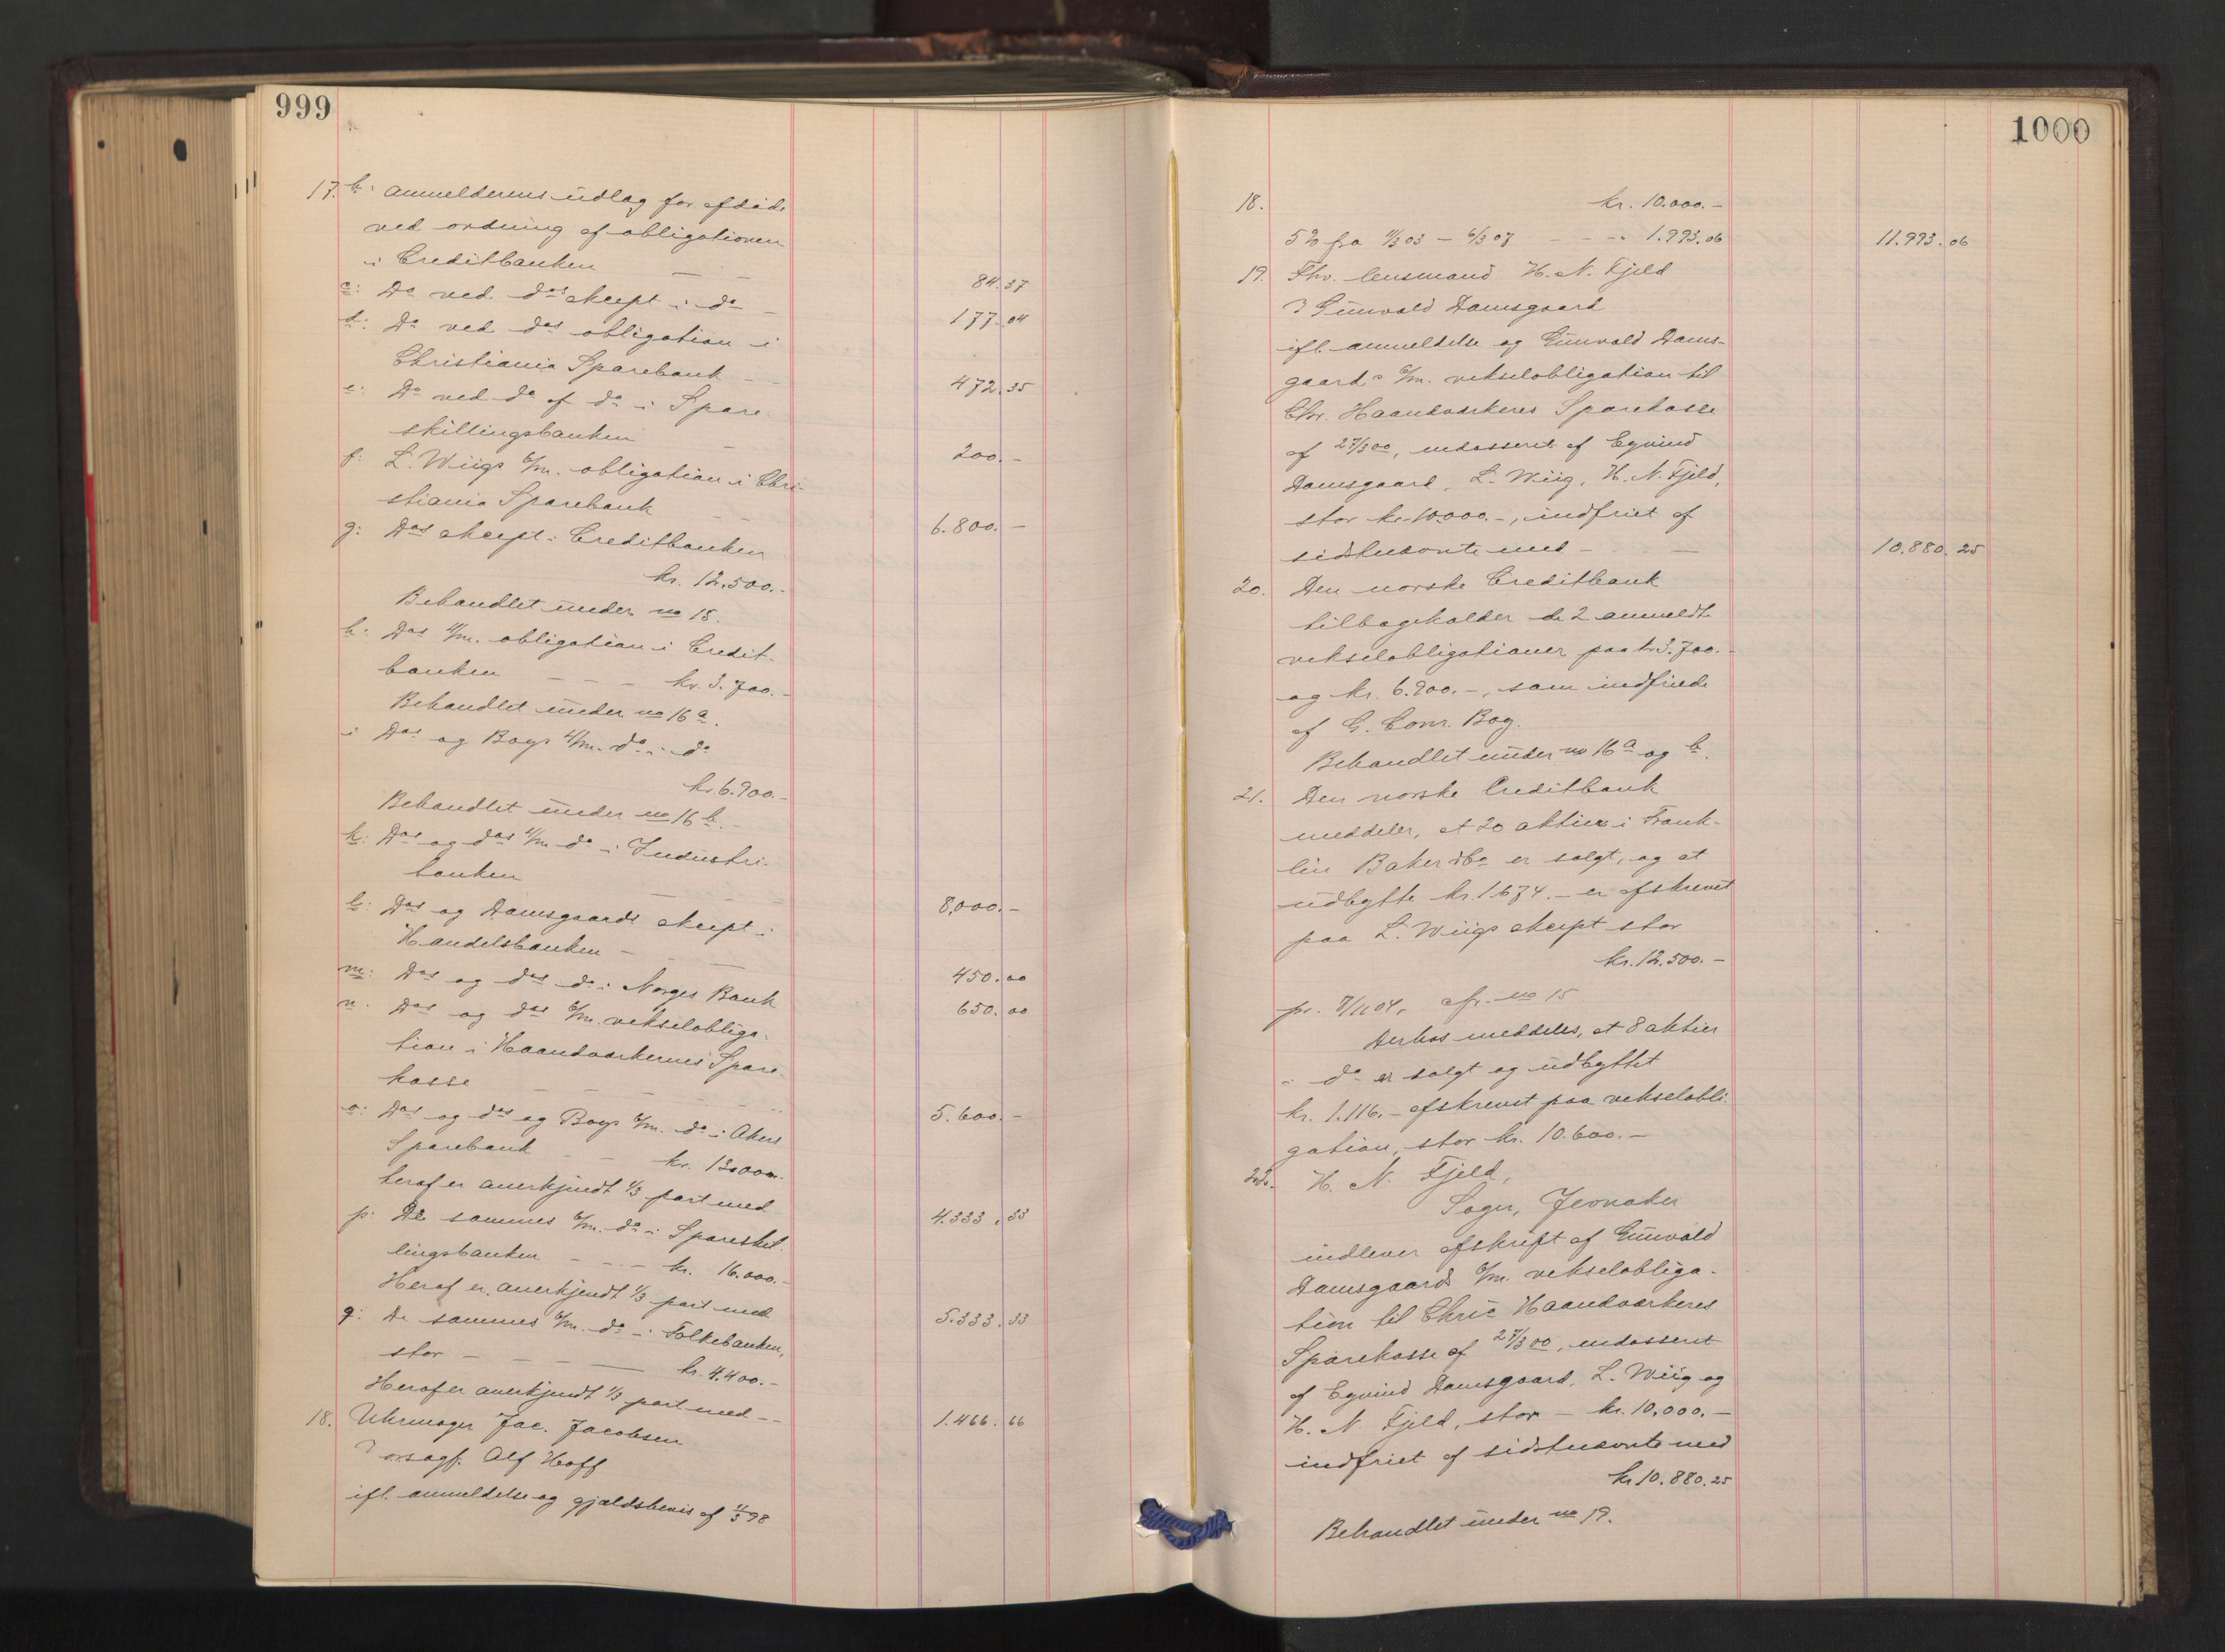 999
17. b: Anmelderens udlag for afdöde
ved ordning af obligationen
i Creditbanken — — 84.37
c: Do ved dos aksept i do — 177.04
d: Do ved dos obligation i
Christiania Sparebank — — 472.35
e: Do ved do af do i Spare-
skillingsbanken — 200.–
f: L. Wiigs 6/m. obligation i Chri-
stiania Sparebank — — 6.800.–
g: Dos aksept i Creditbanken
kr. 12.500.–
Behandlet under no 15.
h: Dos 4/m. obligation i Credit-
banken — — — kr. 3.700.–
Behandlet under no 16 a.
i Dos og Boys 4/m. do i do
kr. 6.900.–
Behandlet under no 16 b.
k: Dos og dos 4/m do i Industri-
banken — — 8,000.–
l: Dos og Damsgaards aksept i
Handelsbanken — — 450.00
m: Dos og dos do i Norges Bank 650.00
n: Dos og dos 6/m. vekselobliga-
tion i Haandværkernes Spare-
kasse — — — 5.600.–
o: Dos og dos og Boys 6/m. do i Akers
Sparebank — — kr. 13.000.–
heraf er anerkjendt 1/3 part med 4.333.33
p: De sammes 6/m. do i Spareskil-
lingsbanken — — — kr. 16.000.–
Heraf er anerkjendt 1/3 part med 5.333.33
q: De sammes 6/m. do i Folkebanken,
stor — — — — kr. 4.400.–
Heraf er anerkjendt 1/3 part med — 1.466.66
18. Uhrmager Jac. Jacobsen
Alf Hoff
ifl. anmeldelse og gjældsbevis af 98
1000
18. kr. 10.000.–
5% fra 11/3 03 – 6/3 07 — — — 1.993.06 11.993.06
19. Fhv. lensmand H. N. Fjeld
Gunvald Damsgaard
ifl. anmeldelse og Gunvald Dams-
gaards 6/m. vekselobligation til
Chr. Haandværkeres Sparekasse
af 27/3 00, endosseret af Eyvind
Damsgaard, L. Wiig, H. N. Fjeld,
stor kr. 10.000.–, indfriet af
sidstnævnte med — — 10.880.25
20. Den norske Creditbank
tilbageholder de 2 anmeldte
vekselobligationer paa kr. 3.700.–
og kr. 6.900.–, som indfriede
af G. Conr. Boy.
Behandlet under no 16 a og b.
21. Den norske Creditbank
meddeler, at 20 aktier i Frank-
lin Baker & Co er solgt, og at
udbytte kr. 1.674.– er afskrevet
paa L. Wiigs aksept stor
kr. 12.500.–
pr. 7/11 04, cfr. no 15
Derhos meddeles, at 8 aktier
i do er solgt og udbyttet
kr. 1.116.– afskrevet paa vekselobli-
gation, stor kr. 10.600.–
22. H. N. Fjeld,
Jevnaker
indlever afskrift af Gunvald
Damsgaards 6/m. vekselobliga-
tion til Chria Haandværkeres
Sparekasse af 27/3 00, endosseret
af Eyvind Damsgaard, L. Wiig og
H. N. Fjeld, stor — kr. 10,000.–
indfriet af sidstnævnte med
kr. 10.880.25
Behandlet under no 19.